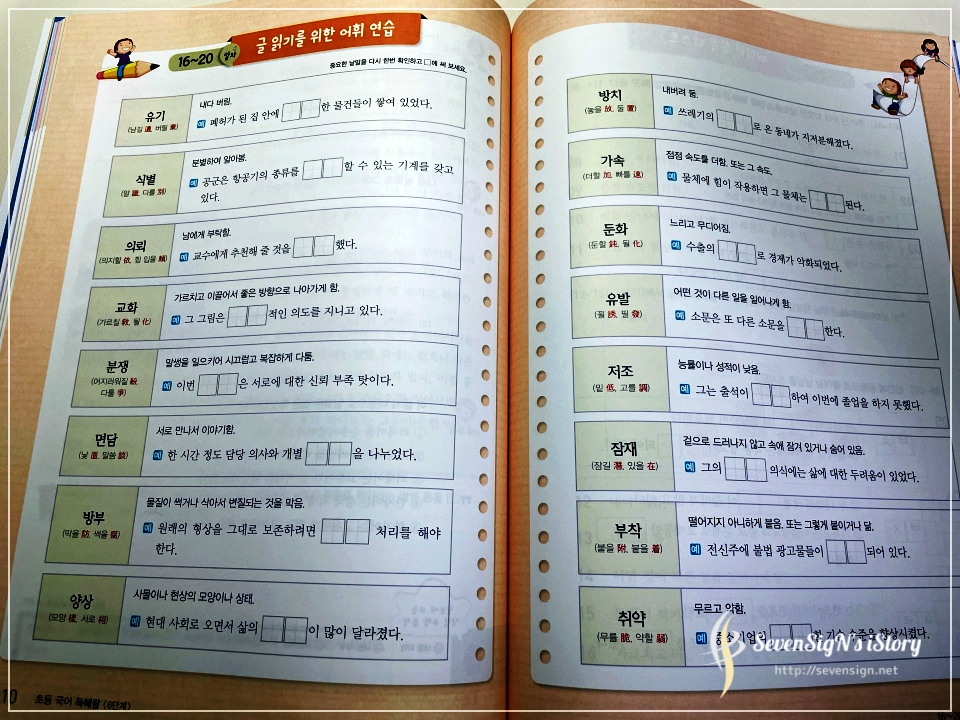 16~20 일차
글 읽기를 위한 어휘 연습
중요한 낱말을 다시 한번 확인하고 □에 써 보세요.
유기
(남길 遺, 버릴 棄)
내다 버림.
예 폐허가 된 집 안에 □□한 물건들이 쌓여 있었다.
식별
(알 識, 다를 別)
분별하여 알아봄.
예 공군은 항공기의 종류를 □□할 수 있는 기계를 갖고
있다.
의뢰
(의지할 依, 힘 입을 賴)
남에게 부탁함.
예 교수에게 추천해 줄 것을 □□했다.
교화
(가르칠 敎, 될 化)
가르치고 이끌어서 좋은 방향으로 나아가게 함.
예 그 그림은 □□적인 의도를 지니고 있다.
분쟁
(어지러워질 紛,
다툴 爭)
말썽을 일으키어 시끄럽고 복잡하게 다툼.
예 이번 □□은 서로에 대한 신뢰 부족 탓이다.
면담
(낯 面, 말씀 談)
서로 만나서 이야기함.
예 한 시간 정도 담당 의사와 개별 □□을 나누었다.
방부
(막을 防, 썩을 腐)
물질이 썩거나 삭아서 변질되는 것을 막음.
예 원래의 형상을 그대로 보존하려면 □□ 처리를 해야
한다.
양상
(모양 樣, 서로 相)
사물이나 현상의 모양이나 상태.
예 현대 사회로 오면서 삶의 □□이 많이 달라졌다.
10 초등 국어 독해왕 (6단계)
방치
(놓을 放, 둘 置)
내버려 둠.
예 쓰레기의 □□로 온 동네가 지저분해졌다.
가속
(더할 加, 빠를 速)
점점 속도를 더함. 또는 그 속도.
예 물체에 힘이 작용하면 그 물체는 □□된다.
둔화
(둔할 鈍, 될 化)
느리고 무디어짐.
예 수출의 □□로 경제가 악화되었다.
유발
(꾈 誘, 필 發)
어떤 것이 다른 일을 일어나게 함.
예 소문은 또 다른 소문을 □□한다.
저조
(밑 低, 고를 調)
능률이나 성적이 낮음.
예 그는 출석이 □□하여 이번에 졸업을 하지 못했다.
잠재
(잠길 潛, 있을 在)
겉으로 드러나지 않고 속에 잠겨 있거나 숨어 있음.
예 그의 □□ 의식에는 삶에 대한 두려움이 있었다.
부착
(붙을 附, 붙을 着)
떨어지지 아니하게 붙음. 또는 그렇게 붙이거나 닮.
예 전신주에 불법 광고물들이 □□되어 있다.
취약
(무를 脆, 약할 弱)
무르고 약함.
예 중소기업의 □□ 기술 수준을 향상시켰다.
SevenSigN's iStory
http://sevensign.net